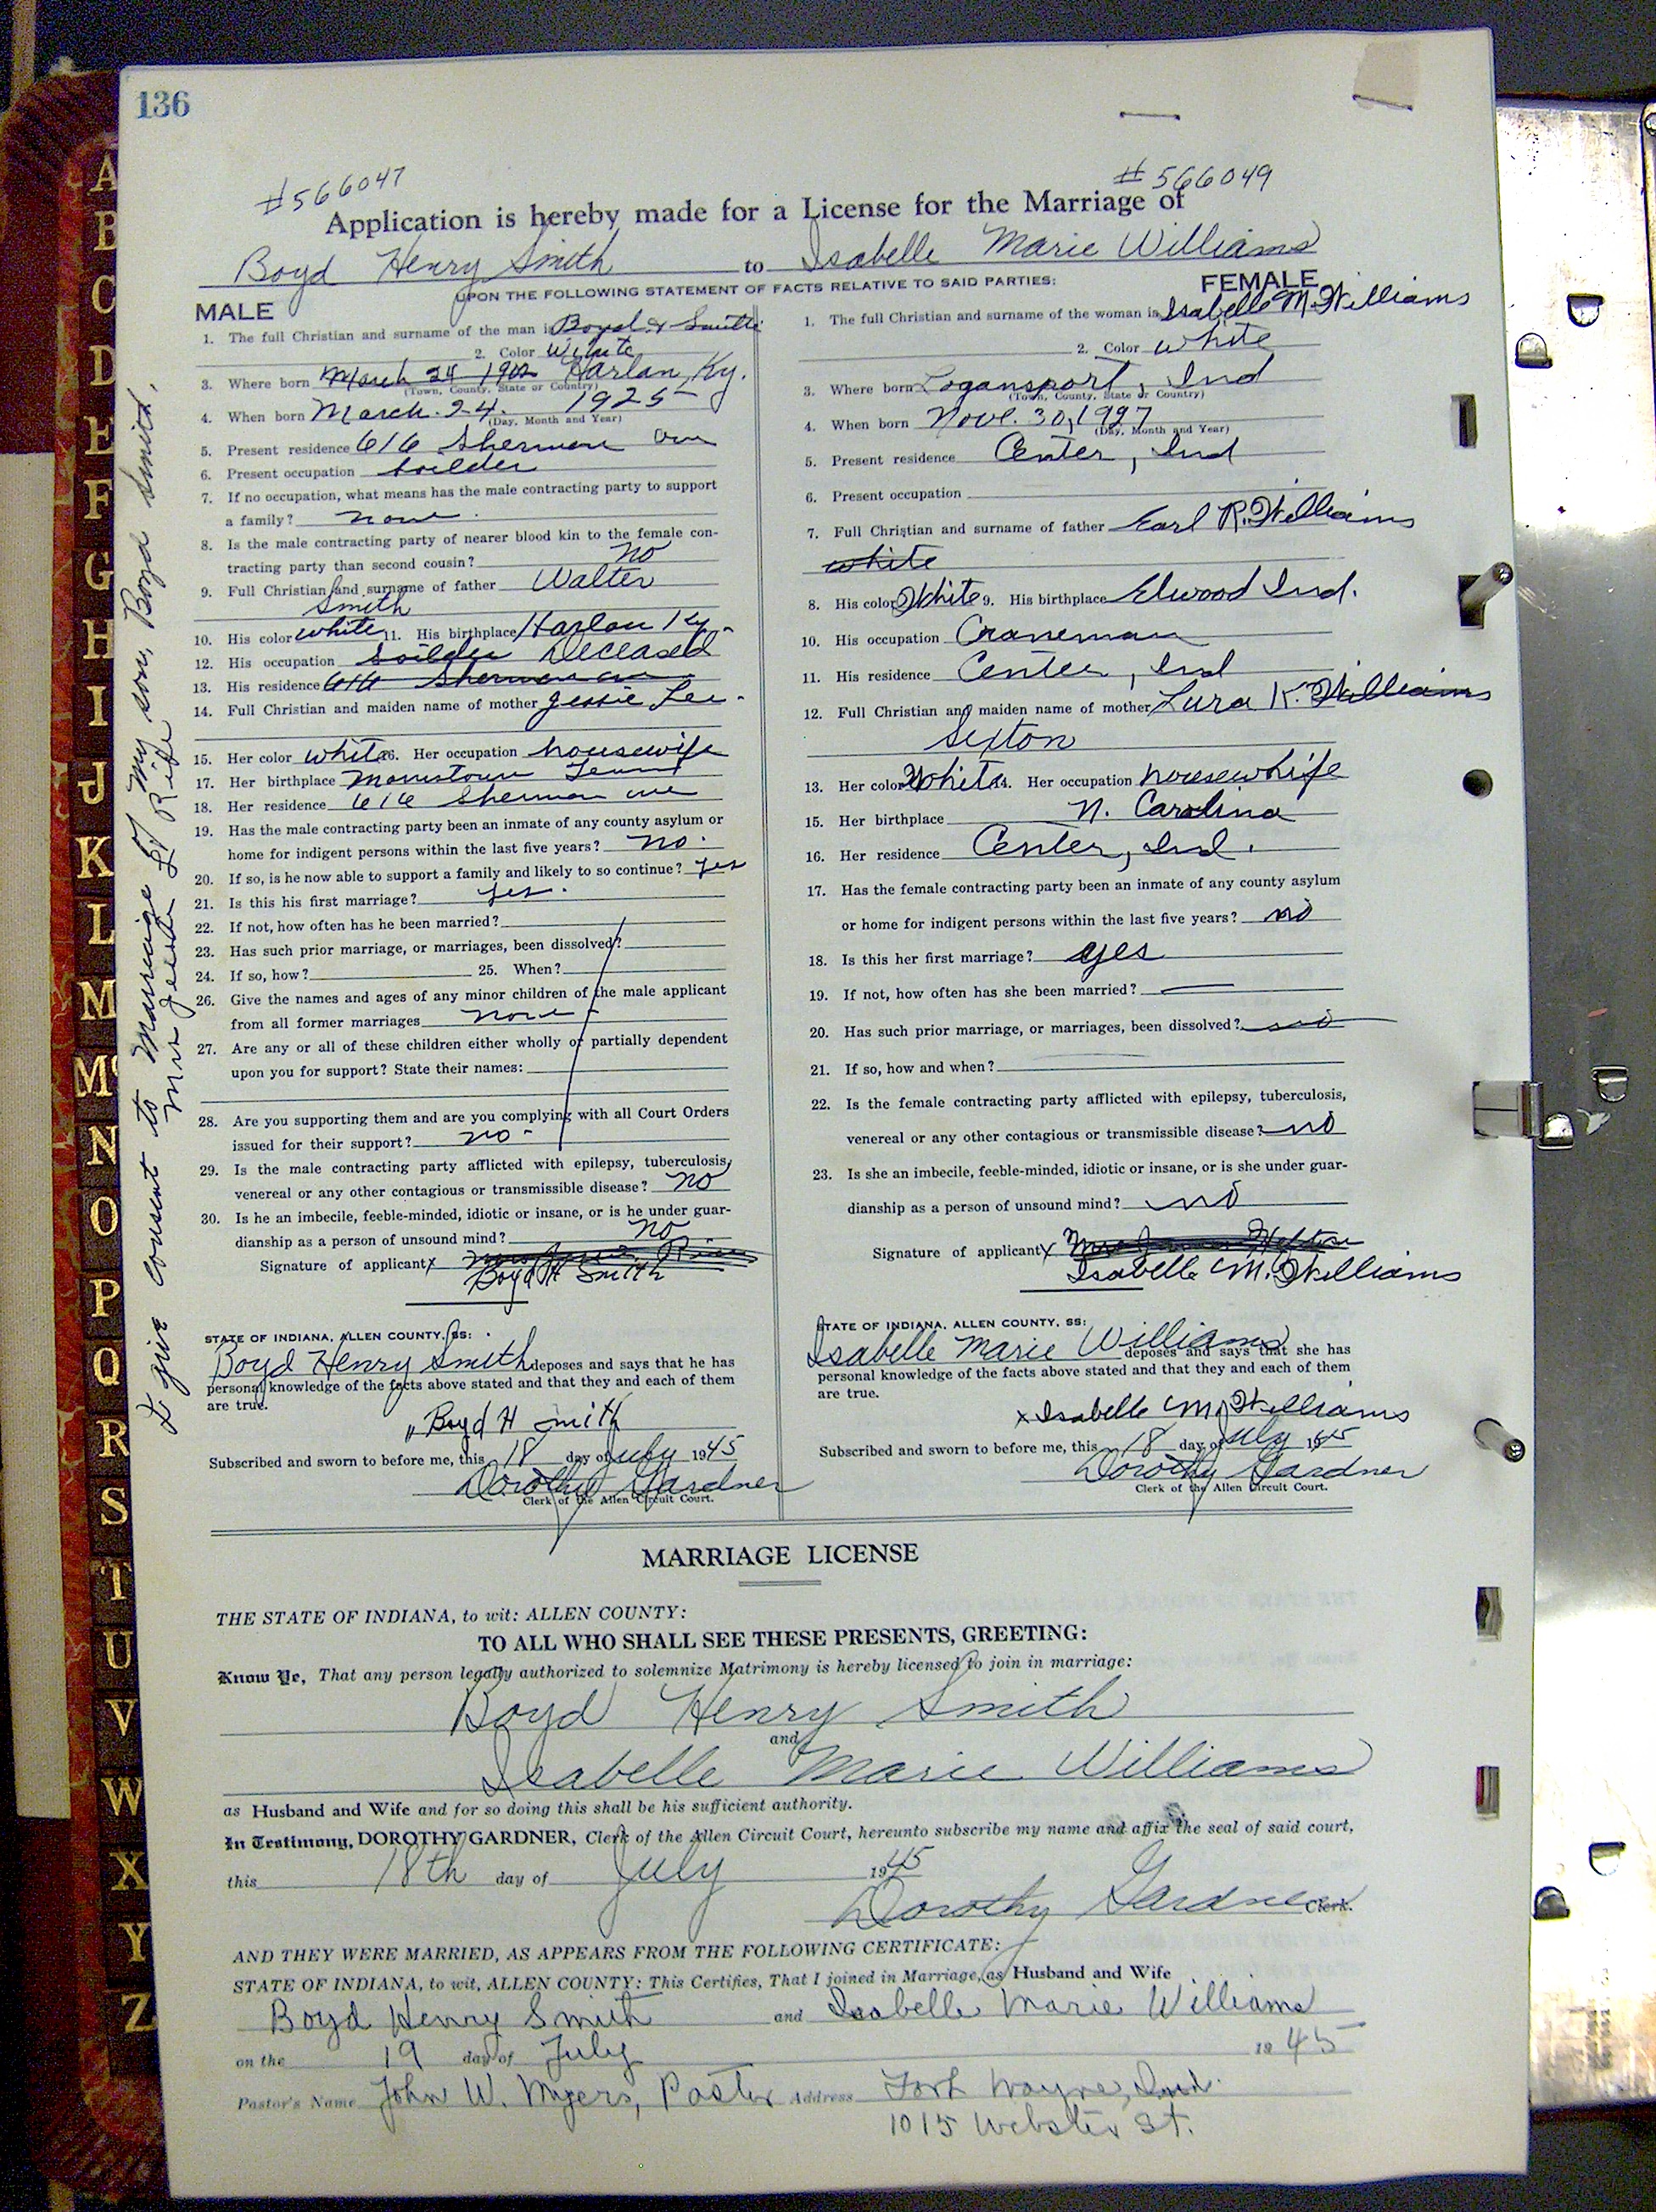 136
#566047
#566049
Application is hereby made for a License for the Marriage of
Boyd Henry Smith to Isabelle Marie Williams
UPON THE FOLLOWING STATEMENT OF FACTS RELATIVE TO SAID PARTIES:
MALE
1. The full Christian and surname of the man is Boyd H Smith
2. Color White
3. Where born March 24 1902 Harlan, Ky.
(Town, County, State or Country)
4. When born March. 24. 1925
(Day, Month and Year)
5. Present residence 616 Sherman ave
6. Present occupation soilder
7. If no occupation, what means has the male contracting party to support
a family? none.
8. Is the male contracting party of nearer blood kin to the female con-
tracting party than second cousin? no
9. Full Christian and surname of father Walter
Smith
10. His color white 11. His birthplace Harlan Ky.
12. His occupation soilder Deceased
13. His residence 616 Sherman ave
14. Full Christian and maiden name of mother Jessie Lee.
15. Her color white 16. Her occupation housewife
17. Her birthplace Morristown Tenn
18. Her residence 616 Sherman ave
19. Has the male contracting party been an inmate of any county asylum or
home for indigent persons within the last five years? no.
20. If so, is he now able to support a family and likely to so continue? yes
21. Is this his first marriage? yes.
22. If not, how often has he been married?
23. Has such prior marriage, or marriages, been dissolved?
24. If so, how? 25. When?
26. Give the names and ages of any minor children of the male applicant
from all former marriages none
27. Are any or all of these children either wholly or partially dependent
upon you for support? State their names:
28. Are you supporting them and are you complying with all Court Orders
issued for their support? no
29. Is the male contracting party afflicted with epilepsy, tuberculosis,
venereal or any other contagious or transmissible disease? no
30. Is he an imbecile, feeble-minded, idiotic or insane, or is he under guar-
dianship as a person of unsound mind? no
Signature of applicant x
Boyd H Smith
STATE OF INDIANA, ALLEN COUNTY, SS:
Boyd Henry Smith deposes and says that he has
personal knowledge of the facts above stated and that they and each of them
are true.
Boyd H Smith
Subscribed and sworn to before me, this 18 day of July 1945
Dorothy Gardner
Clerk of the Allen Circuit Court.
FEMALE
1. The full Christian and surname of the woman is Isabelle M. Williams
2. Color white
3. Where born Logansport, Ind
(Town, County, State or Country)
4. When born Nov. 30, 1927
(Day, Month and Year)
5. Present residence Center, Ind
6. Present occupation
7. Full Christian and surname of father Earl R. Williams
white
8. His color White 9. His birthplace Elwood Ind.
10. His occupation Craneman
11. His residence Center, Ind
12. Full Christian and maiden name of mother Lura K. Williams
Sexton
13. Her color White 14. Her occupation housewhife
15. Her birthplace N. Carolina
16. Her residence Center, Ind.
17. Has the female contracting party been an inmate of any county asylum
or home for indigent persons within the last five years? no
18. Is this her first marriage? yes
19. If not, how often has she been married?
20. Has such prior marriage, or marriages, been dissolved? no
21. If so, how and when?
22. Is the female contracting party afflicted with epilepsy, tuberculosis,
venereal or any other contagious or transmissible disease? no
23. Is she an imbecile, feeble-minded, idiotic or insane, or is she under guar-
dianship as a person of unsound mind? no
Signature of applicant x
Isabelle M. Williams
STATE OF INDIANA, ALLEN COUNTY, SS:
Isabelle Marie Williams deposes and says that she has
personal knowledge of the facts above stated and that they and each of them
are true.
x Isabelle M. Williams
Subscribed and sworn to before me, this 18 day of July 1945
Dorothy Gardner
Clerk of the Allen Circuit Court.
I give consent to Marriage of my son, Boyd Smith,
Mrs Jessie L Rife
MARRIAGE LICENSE
THE STATE OF INDIANA, to wit: ALLEN COUNTY:
TO ALL WHO SHALL SEE THESE PRESENTS, GREETING:
Know Ye, That any person legally authorized to solemnize Matrimony is hereby licensed to join in marriage:
Boyd Henry Smith
and
Isabelle Marie Williams
as Husband and Wife and for so doing this shall be his sufficient authority.
In Testimony, DOROTHY GARDNER, Clerk of the Allen Circuit Court, hereunto subscribe my name and affix the seal of said court,
this 18th day of July 1945
Dorothy Gardner Clerk.
AND THEY WERE MARRIED, AS APPEARS FROM THE FOLLOWING CERTIFICATE:
STATE OF INDIANA, to wit, ALLEN COUNTY: This Certifies, That I joined in Marriage, as Husband and Wife
Boyd Henry Smith and Isabelle Marie Williams
on the 19 day of July 1945
Pastor's Name John W. Myers, Pastor Address Fort Wayne, Ind.
1015 Webster St.
A
B
C
D
E
F
G
H
I
J
K
L
M
Mc
N
O
P
Q
R
S
T
U
V
W
X
Y
Z